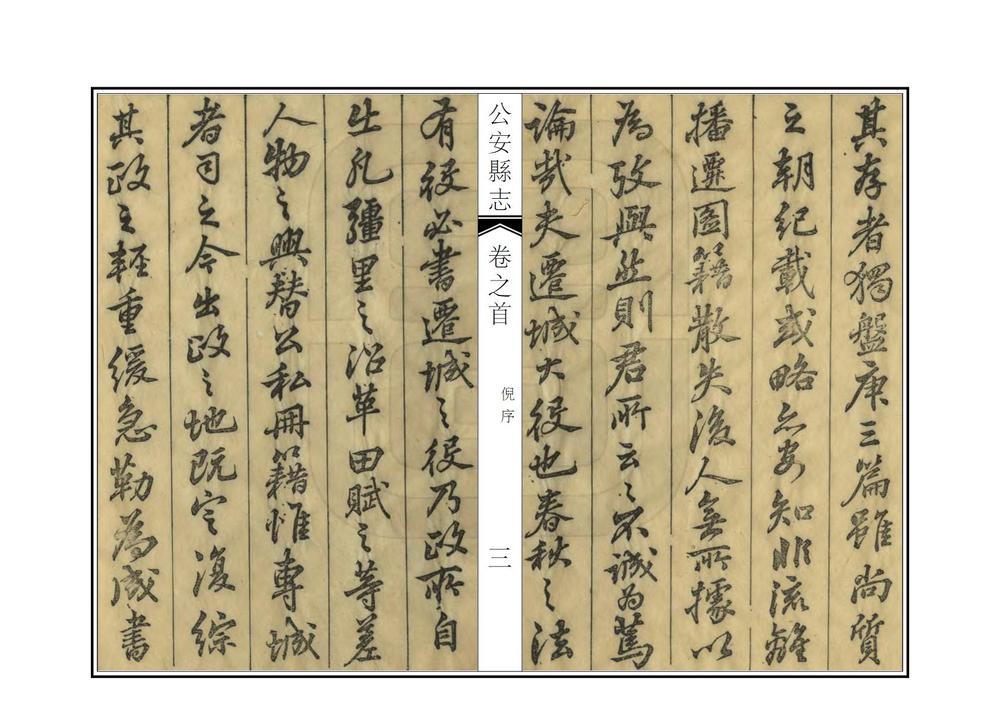 其存者獨盤庚三篇雖尚質
之朝紀載或略亦安知非流離
播遷圖籍散失後人無所據以
為攷興然則君所云云不誠為篤
論哉夫遷城大役也春秋之法
公安縣志
卷之首
倪序
三
有役必書遷城之役乃政所自
出凡疆里之沿革田賦之等差
人物之興替公私冊籍惟專城
者司之今出政之地既定復綜
其政之輕重緩急勒為成書